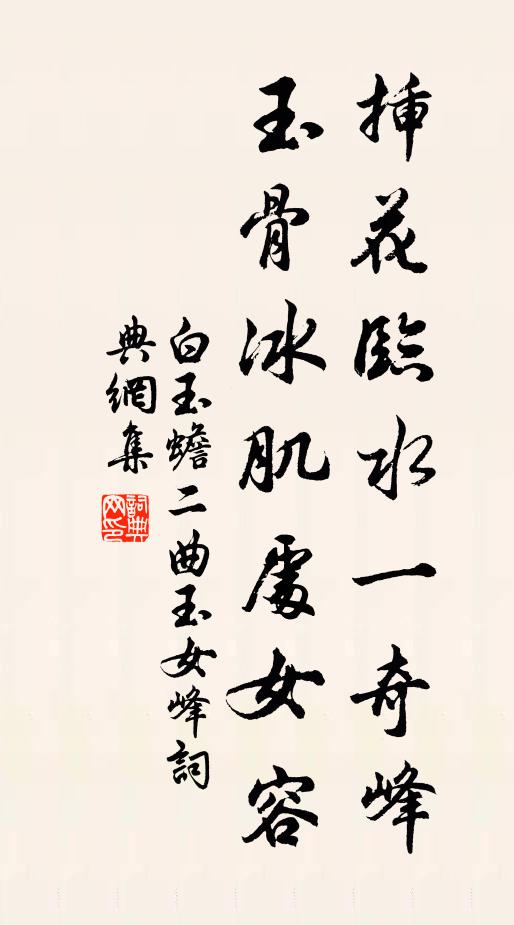 揷花臨水一奇峰
玉骨冰肌處女容
白玉蟾二曲玉女峰詞
典網集
詞典網印